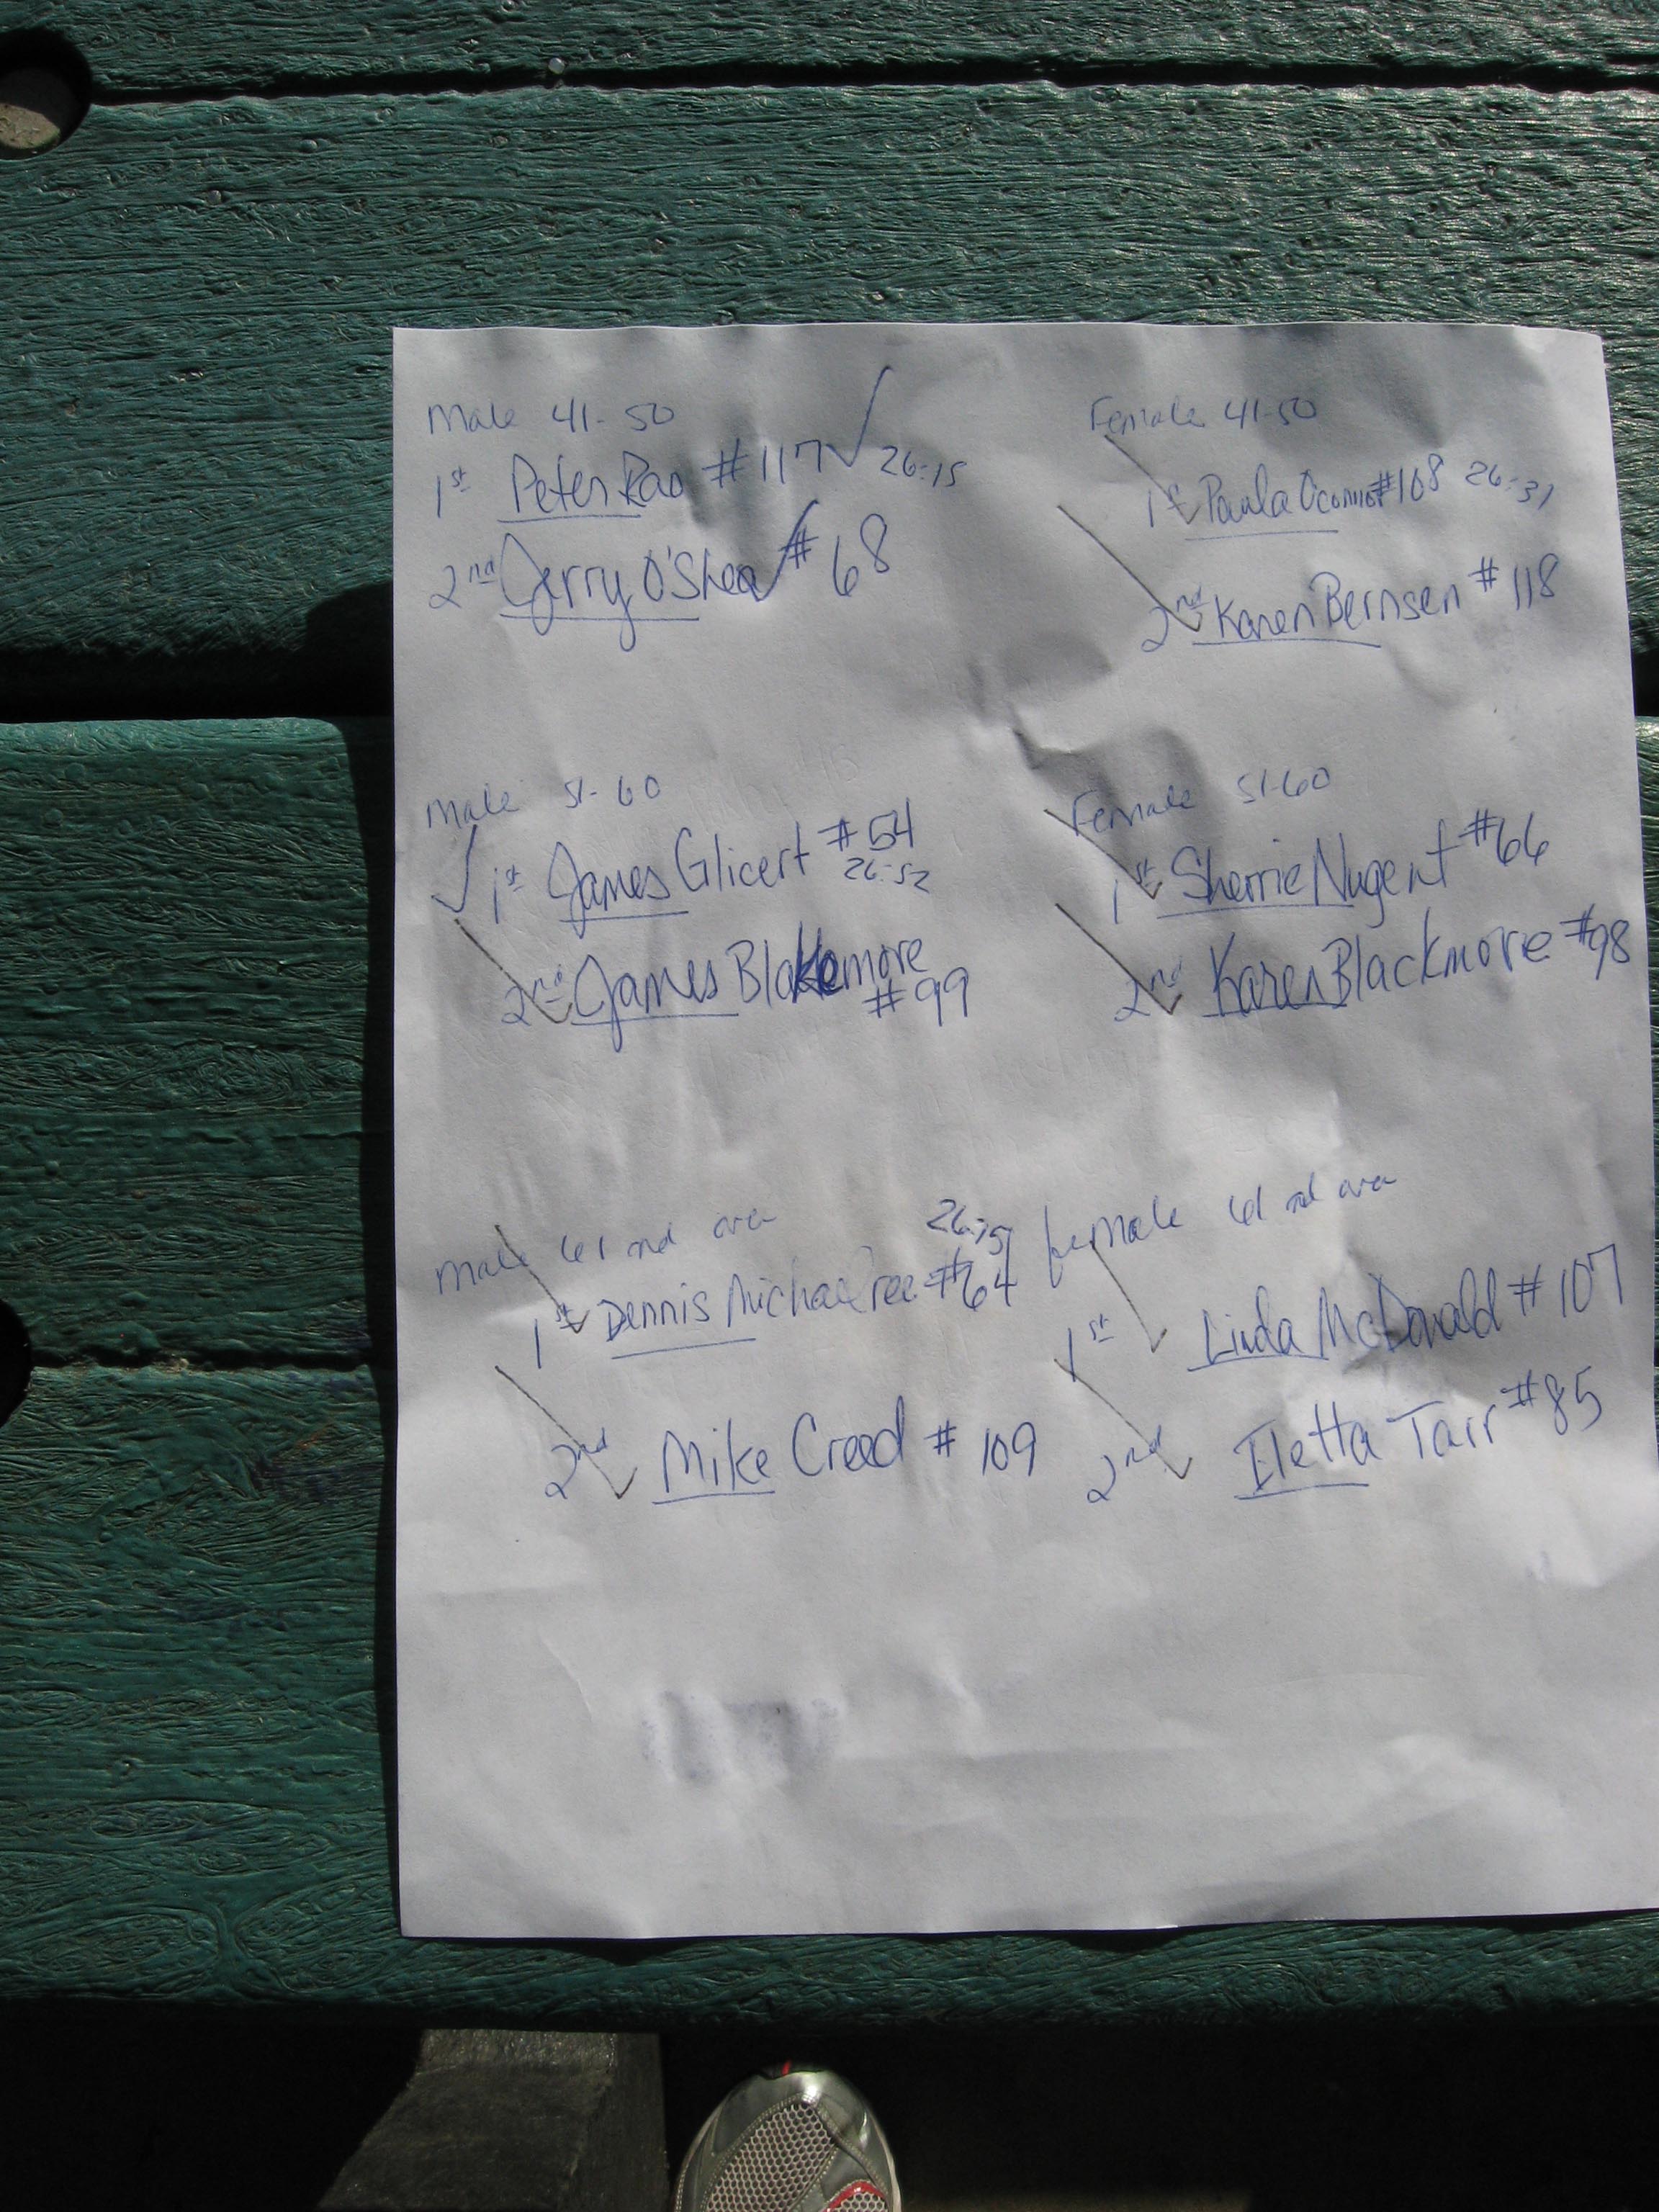 Male 41-50
1st Peter Rao #117 26:15
2nd Jerry O'Shea #68
Female 41-50
1st Paula Oconnor #108 26:31
2nd Karen Bernsen #118
Male 51-60
1st James Glicert #54
26:52
2nd James Blakemore
#99
Female 51-60
1st Sherrie Nugent #66
2nd Karen Blackmore #98
Male 61 and over
26:
1st Dennis #64
2nd Mike Creed #109
female 61 and over
1st Linda McDonald #107
2nd Iletta Tarr #85